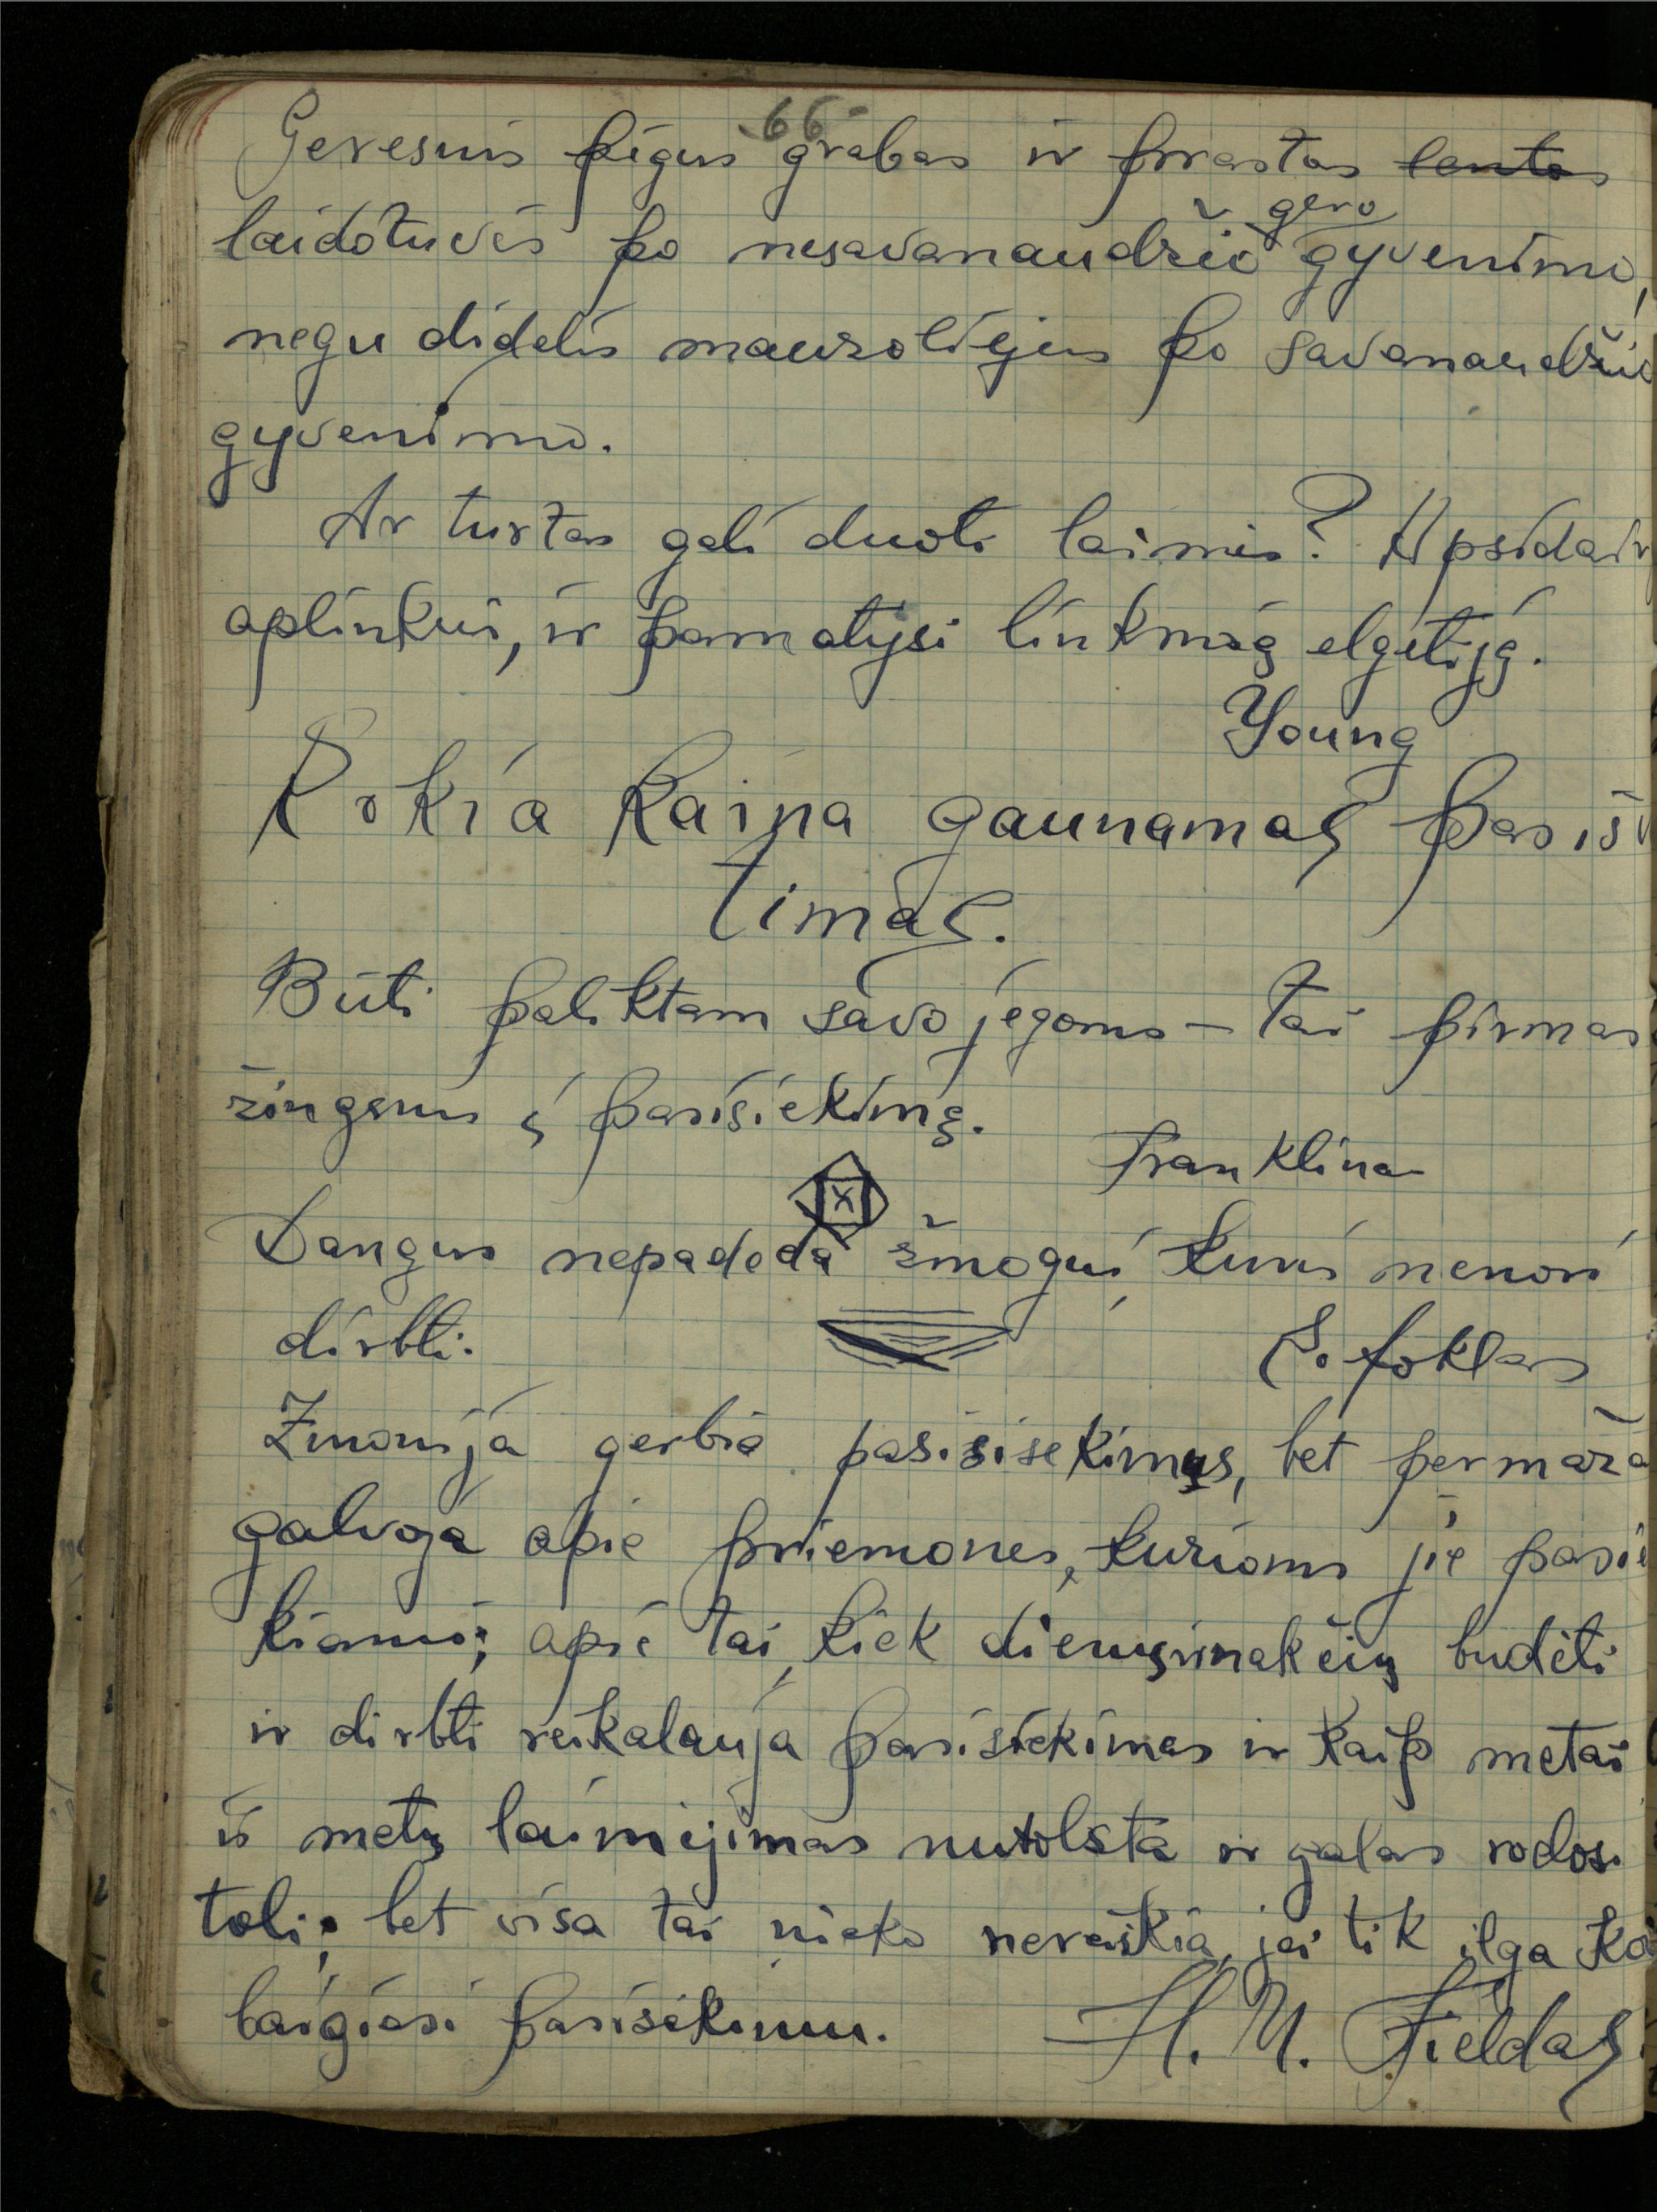 66
Geresnis pigus grabas ir prastas lentas
gero
laidotuvės po nesavanaudžio gyvenimo,
negu didelis mauzoliejus po savanaudžio
gyvenimo.
Ar turtas gali duoti laimės? Apsidair
aplinkui, ir pamatysi linksmą elgetiją.
Young
Kokia kaina gaunamas pasiš
timas.
Būti paliktam savo jėgoms – tai pirmas
žingsnis į pasisiekimą.
Franklinas
Dangus nepadeda žmogui, kuris nenori
dirbti.
Sofoklas
Žmonija gerbia pasisisekimus, bet permaža
galvoja apie priemones, kurioms jie pasie
kiami; apie tai, kiek dienų ir nakčių budėti
ir dirbti reikalauja pasisiekimas ir kaip metai
iš metų laimėjimas nutolsta ir galas rodosi
toli; bet visa tai nieko nereiškia, jei tik ilga ko
baigiasi pasisekimu.
H. M. Fieldas.